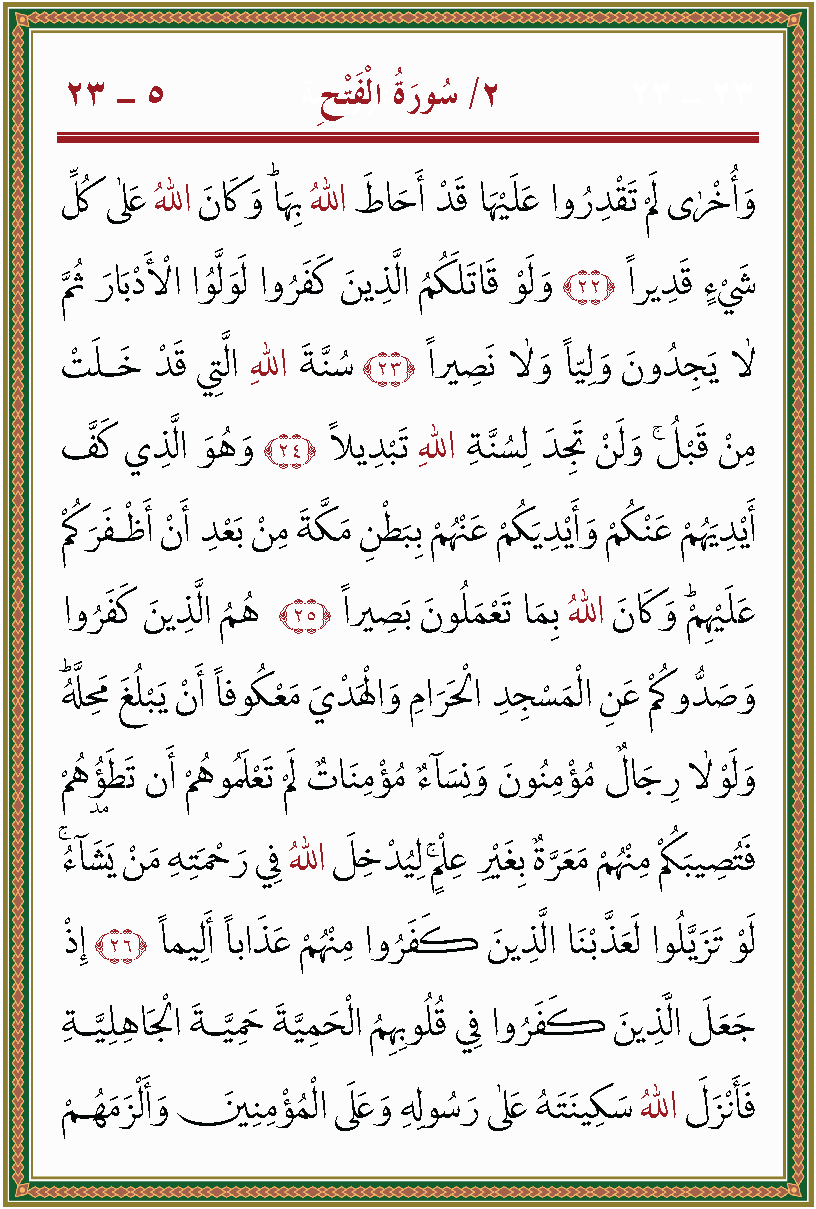 ٢/ سُورَةُ الْفَتْحِ ٥ – ٢٣
وَأُخْرٰى لَمْ تَقْدِرُوا عَلَيْهَا قَدْ أَحَاطَ اللهُ بِهَاۜ وَكَانَ اللهُ عَلٰى كُلِّ
شَيْءٍ قَدِيراً ﴿٢٢﴾ وَلَوْ قَاتَلَكُمُ الَّذِينَ كَفَرُوا لَوَلَّوُا الْأَدْبَارَ ثُمَّ
لَا يَجِدُونَ وَلِيّاً وَلَا نَصِيراً ﴿٢٣﴾ سُنَّةَ اللهِ الَّتِي قَدْ خَلَـتْ
مِنْ قَبْلُۚ وَلَنْ تَجِدَ لِسُنَّةِ اللهِ تَبْدِيلاً ﴿٢٤﴾ وَهُوَ الَّذِي كَفَّ
أَيْدِيَهُمْ عَنْكُمْ وَأَيْدِيَكُمْ عَنْهُمْ بِبَطْنِ مَكَّةَ مِنْ بَعْدِ أَنْ أَظْـفَرَكُمْ
عَلَيْهِمْۜ وَكَانَ اللهُ بِمَا تَعْمَلُونَ بَصِيراً ﴿٢٥﴾ هُمُ الَّذِينَ كَفَرُوا
وَصَدُّوكُمْ عَنِ الْمَسْجِدِ الْحَرَامِ وَالْهَدْيَ مَعْكُوفاً أَنْ يَبْلُغَ مَحِلَّهُۜ
وَلَوْلَا رِجَالٌ مُؤْمِنُونَ وَنِسَآءٌ مُؤْمِنَاتٌ لَمْ تَعْلَمُوهُمْ أَن تَطَؤُهُمْ
فَتُصِيبَكُمْ مِنْهُمْ مَعَرَّةٌ بِغَيْرِ عِلْمٍۚ لِيُدْخِلَ اللهُ فِي رَحْمَتِهِ مَنْ يَشَآءُۚ
لَوْ تَزَيَّلُوا لَعَذَّبْنَا الَّذِينَ كَفَرُوا مِنْهُمْ عَذَاباً أَلِيماً ﴿٢٦﴾ إِذْ
جَعَلَ الَّذِينَ كَفَرُوا فِي قُلُوبِهِمُ الْحَمِيَّةَ حَمِيَّـةَ الْجَاهِلِيَّـةِ
فَأَنْزَلَ اللهُ سَكِينَتَهُ عَلٰى رَسُولِهِ وَعَلَى الْمُؤْمِنِينَ وَأَلْزَمَهُـمْ